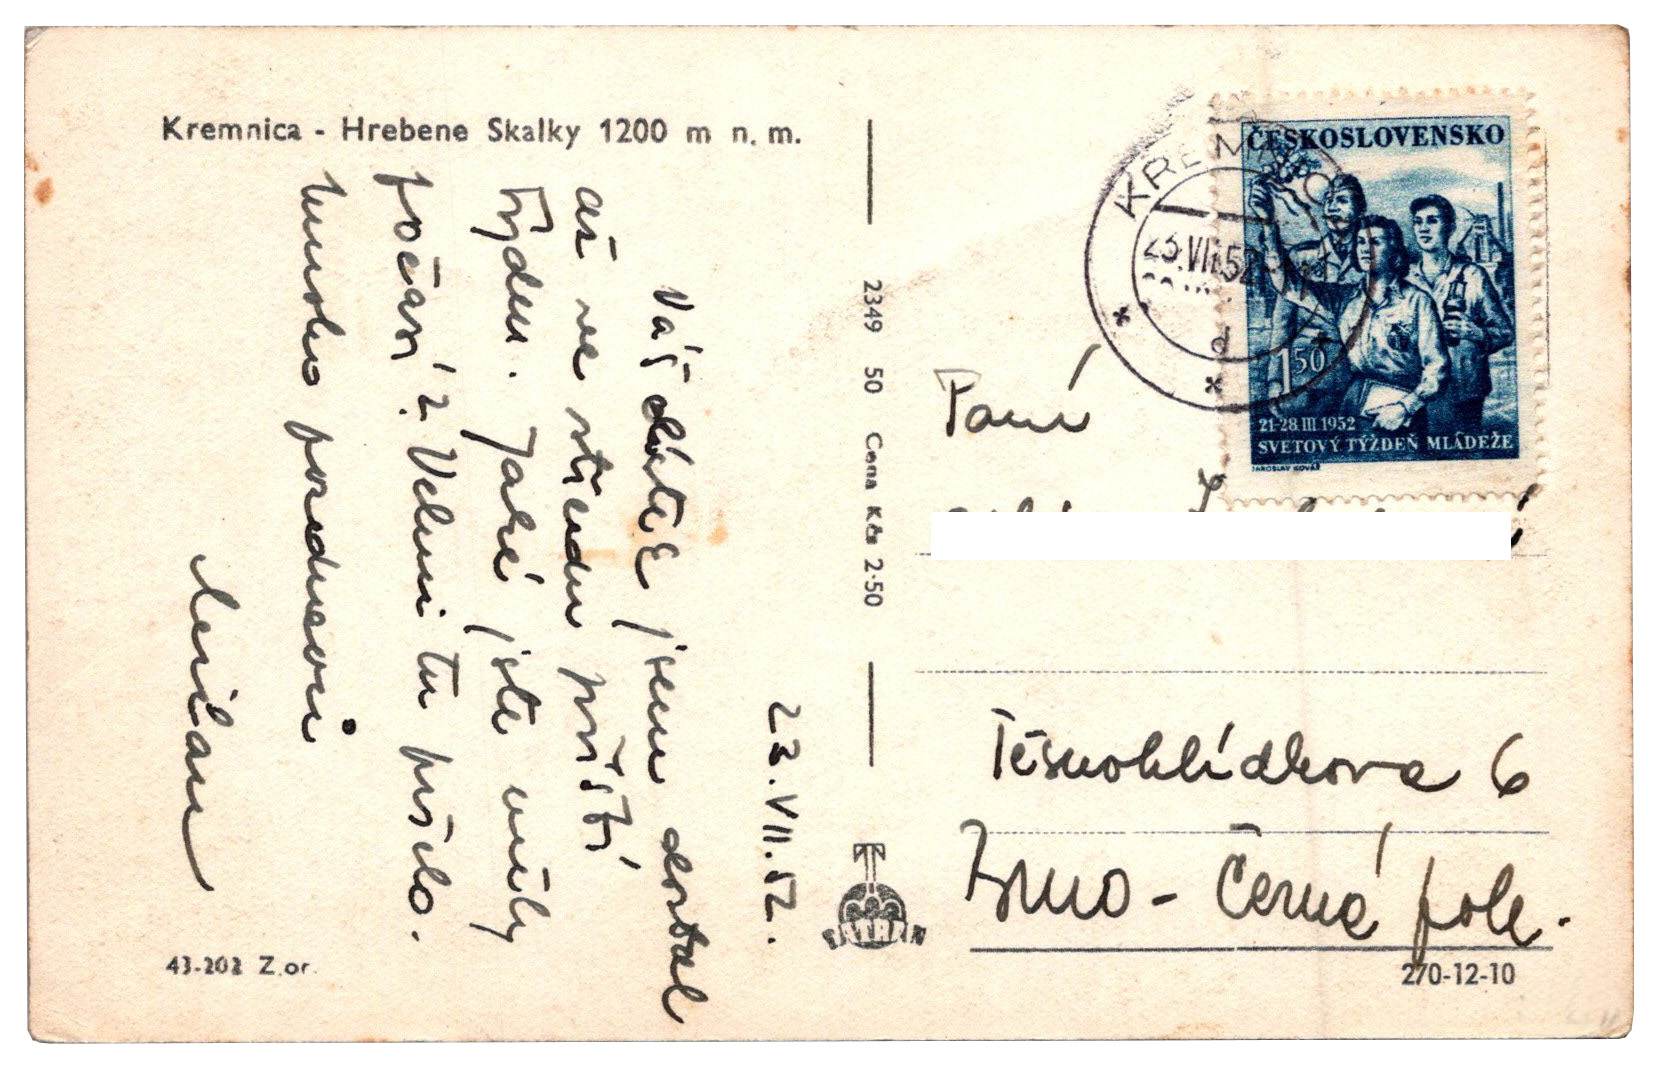 Kremnica - Hrebene Skalky 1200 m n. m.
23.VII.52.
Váš dátit jsem dostal
až ve středu příští
týden. Jaké jste měly
počasí? Velmi tu pršelo.
Mnoho pozdravů
Milan
43-202 Z.or.
2349 50 Cena Kčs 2·50
TATRAN
KREMNICA
23.VII.52
a
ČESKOSLOVENSKO
1 50
21-28.III.1952
SVETOVÝ TÝŽDEŇ MLÁDEŽE
JAROSLAV KOVÁŘ
Paní
Těsnohlídkova 6
Brno - Černá pole.
270-12-10